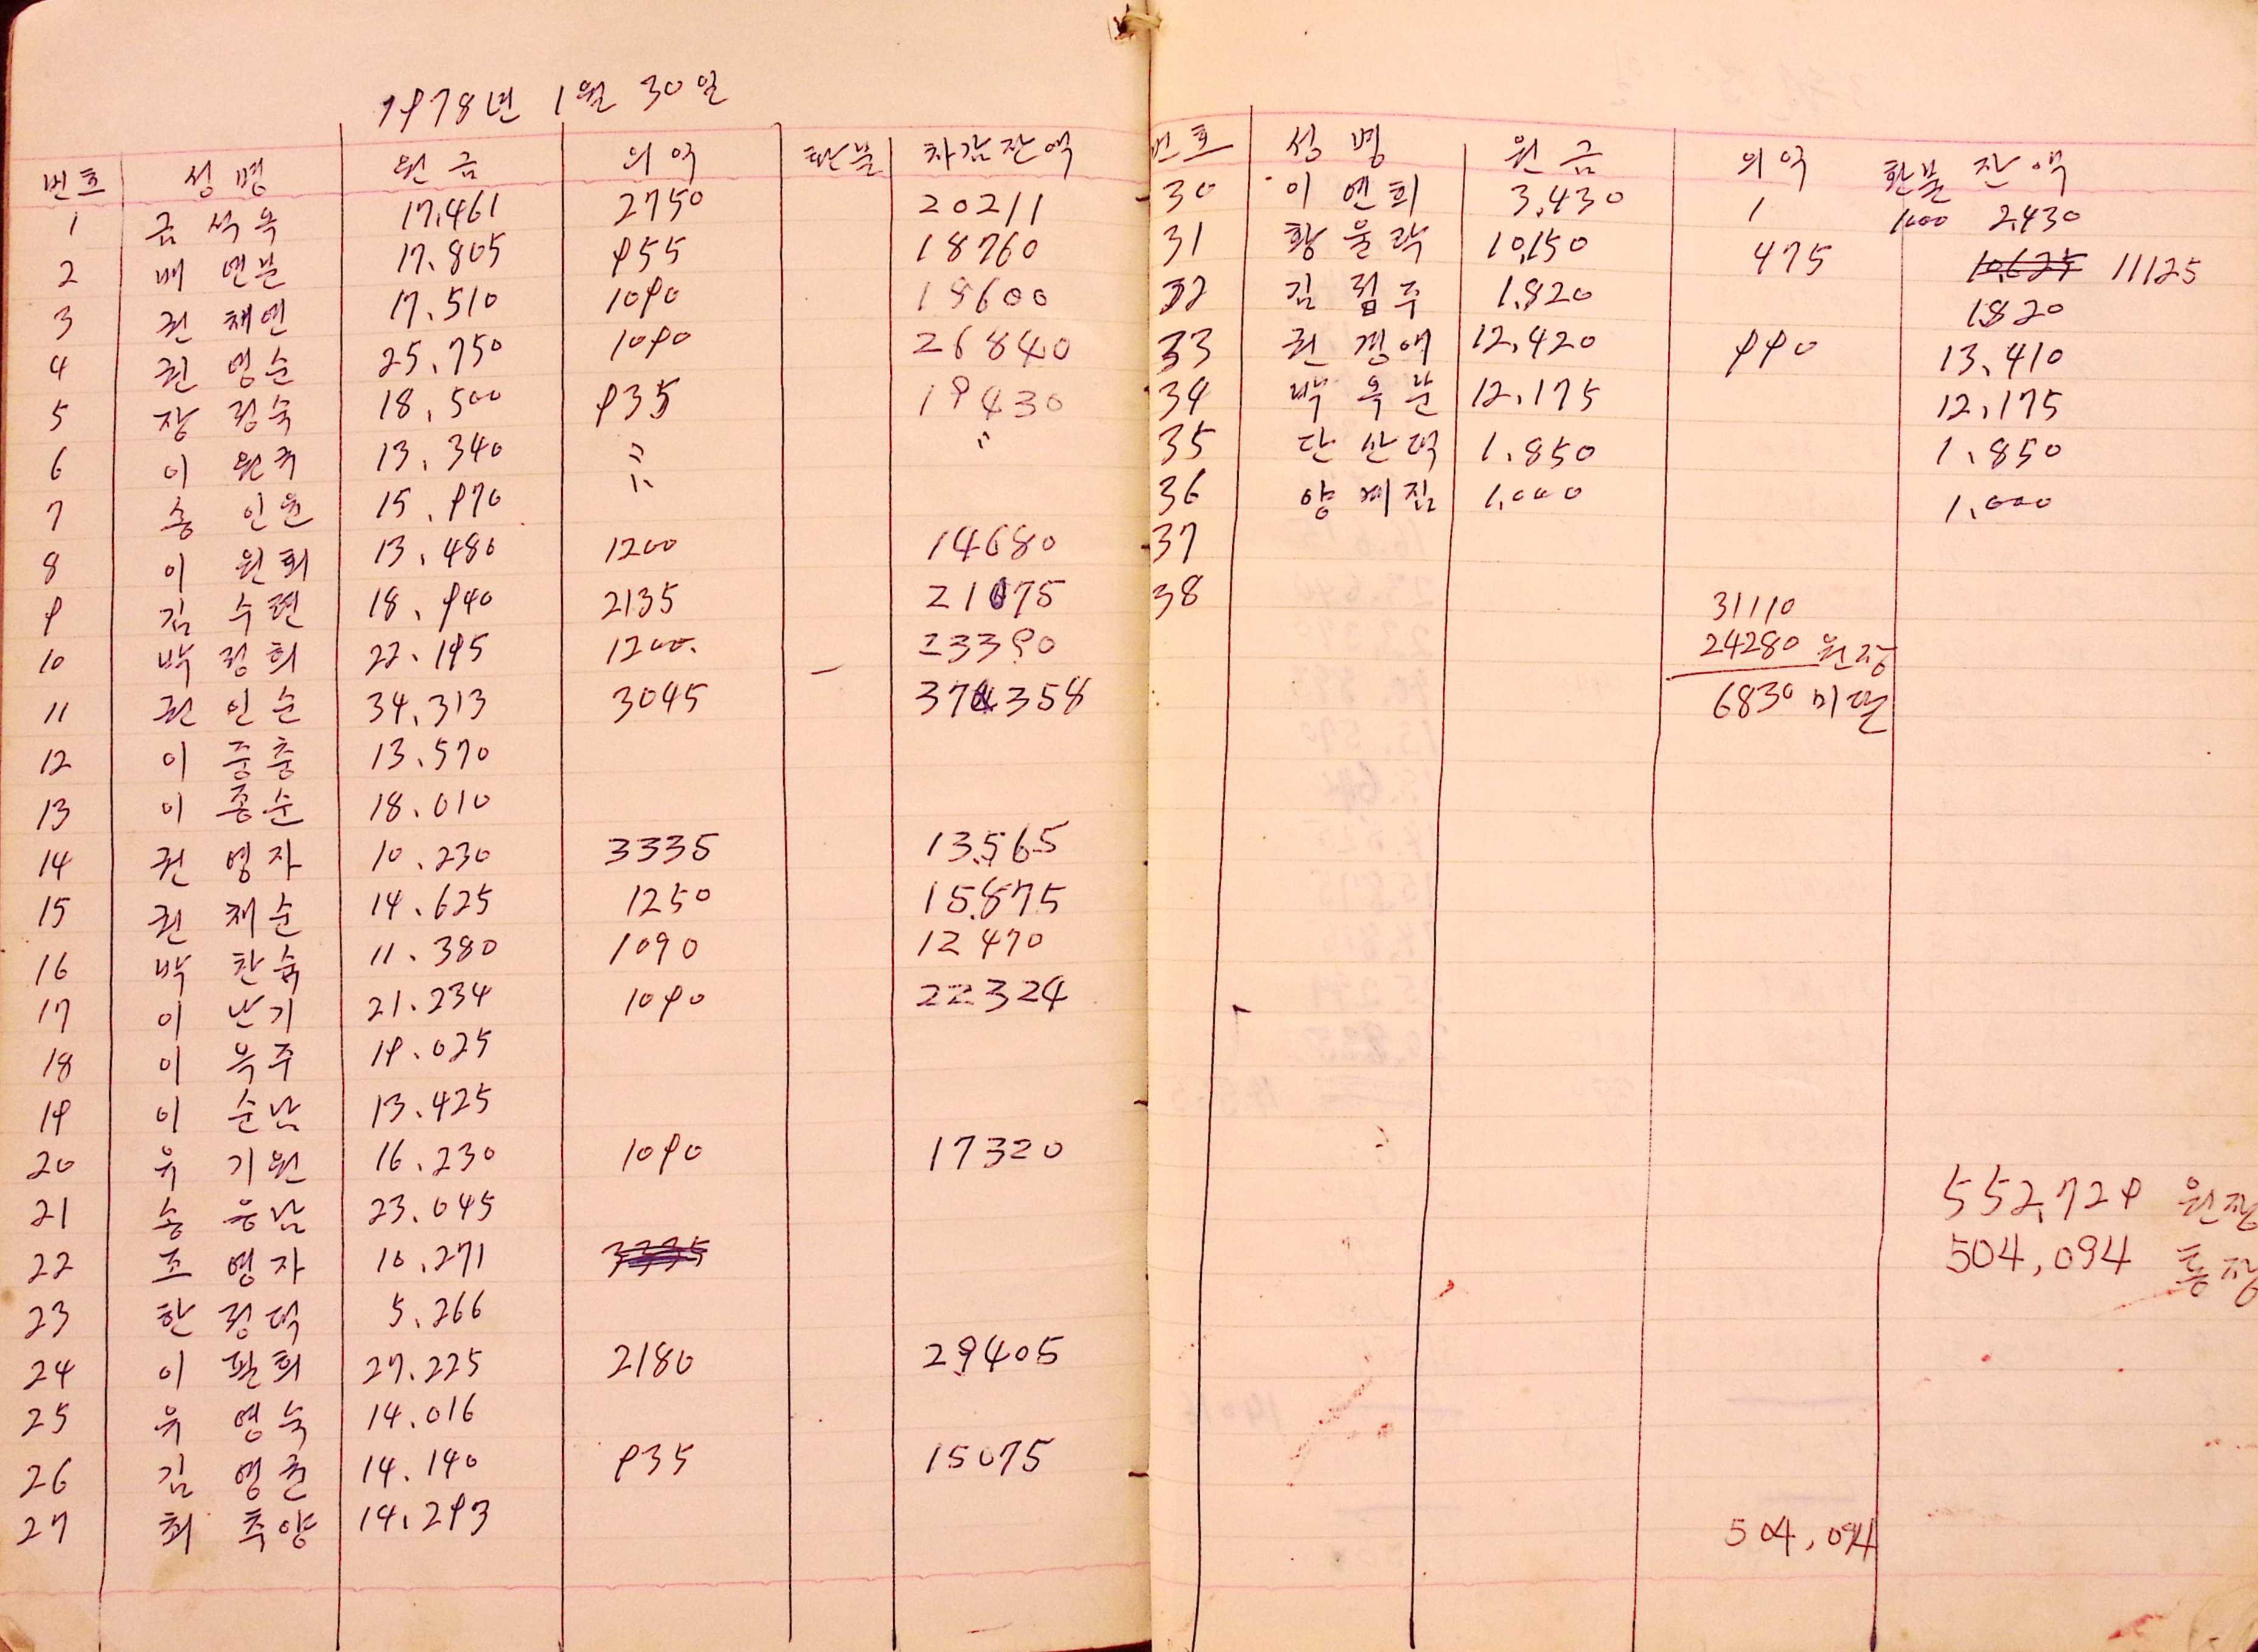 1978년 1월 30일
번호 성명 원금 의억 환불 차감잔액
1 금석옥 17,461 2750 20211
2 배연분 17.805 955 18760
3 권채연 17.510 1090 18600
4 권영순 25.750 1090 26840
5 장정숙 18.500 935 19430
6 이원주 13.340 〃 〃
7 송인윤 15.970 〃
8 이원희 13.480 1200 14680
9 김수련 18.940 2135 21075
10 박정희 22.195 1200. — 23390
11 권인순 34.313 3045 358
12 이중춘 13.570
13 이종순 18.010
14 권영자 10.230 3335 13.565
15 권채순 14.625 1250 15.875
16 박찬숙 11.380 1090 12470
17 이난기 21.234 1090 22324
18 이옥주 19.025
19 이순남 13.425
20 유기원 16.230 1090 17320
21 송응남 23.045
22 조영자 10.271 3335
23 한정덕 5.266
24 이판희 27.225 2180 29405
25 유영숙 14.016
26 김영춘 14.140 935 15075
27 최축양 14.293
번호 성명 원금 의억 환불 잔액
30 이연희 3,430 1 1000 2,430
31 황울락 10,150 475 10,625 11125
32 김점주 1,820 1820
33 권경애 12,420 990 13,410
34 박옥분 12,175 12,175
35 단산덕 1.850 1.850
36 양예집 1.000 1.000
37
38
31110
24280 원장
6830 미달
552,729 원장
504,094 통장
504,094